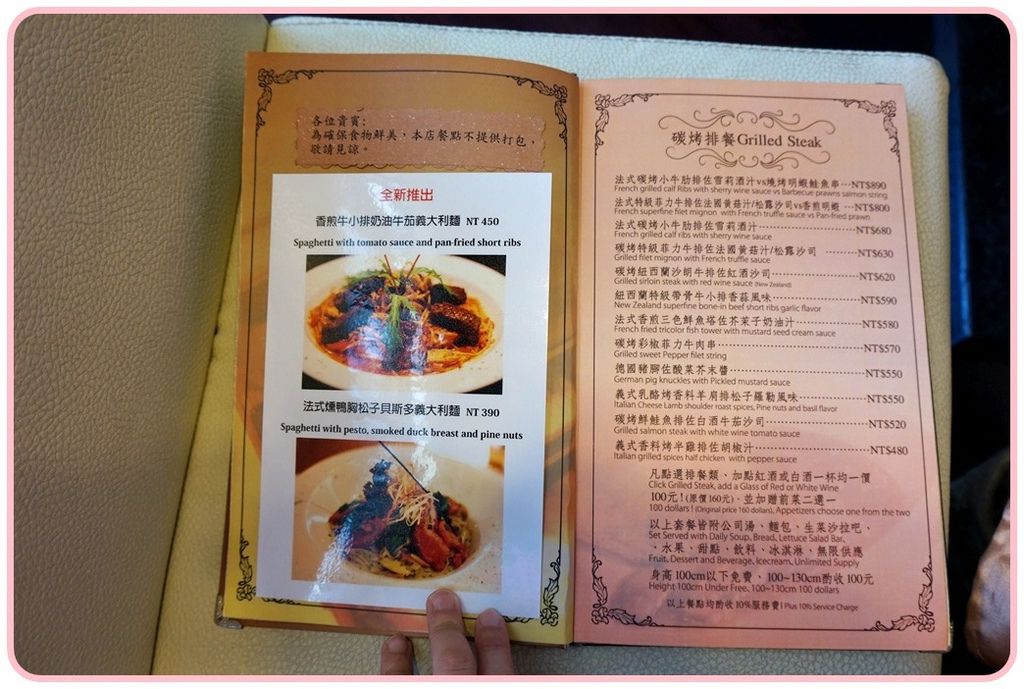 各位貴賓:
為確保食物鮮美，本店餐點不提供打包，
敬請見諒。
全新推出
香煎牛小排奶油牛茄義大利麵 NT 450
Spaghetti with tomato sauce and pan-fried short ribs
法式燻鴨胸松子貝斯多義大利麵 NT 390
Spaghetti with pesto, smoked duck breast and pine nuts
碳烤排餐Grilled Steak
法式碳烤小牛肋排佐雪莉酒汁vs燒烤明蝦鮭魚串…NT$890
French grilled calf Ribs with sherry wine sauce vs Barbecue prawns salmon string
法式特級菲力牛排佐法國黃菇汁/松露沙司vs香煎明蝦 …NT$800
French superfine filet mignon with French truffle sauce vs Pan-fried prawn
法式碳烤小牛肋排佐雪莉酒汁……………NT$680
French grilled calf ribs with sherry wine sauce
碳烤特級菲力牛排佐法國黃菇汁/松露沙司 ………NT$630
Grilled filet mignon with French truffle sauce
碳烤紐西蘭沙朗牛排佐紅酒沙司……………NT$620
Grilled sirloin steak with red wine sauce (New Zealand)
紐西蘭特級帶骨牛小排香蒜風味……………NT$590
New Zealand superfine bone-in beef short ribs garlic flavor
法式香煎三色鮮魚塔佐芥茉子奶油汁…………NT$580
French fried tricolor fish tower with mustard seed cream sauce
碳烤彩椒菲力牛肉串……………………NT$570
Grilled sweet Pepper filet string
德國豬腳佐酸菜芥末醬……………………NT$550
German pig knuckles with Pickled mustard sauce
義式乳酪烤香料羊肩排松子羅勒風味…………NT$550
Italian Cheese Lamb shoulder roast spices, Pine nuts and basil flavor
碳烤鮮鮭魚排佐白酒牛茄沙司………………NT$520
Grilled salmon steak with white wine tomato sauce
義式香料烤半雞排佐胡椒汁…………………NT$480
Italian grilled spices half chicken with pepper sauce
凡點選排餐類、加點紅酒或白酒一杯均一價
Click Grilled Steak, add a Glass of Red or White Wine
100元！(原價160元)，並加贈前菜二選一
100 dollars ! (Original price 160 dollars), Appetizers choose one from the two
以上套餐皆附公司湯、麵包、生菜沙拉吧，
Set Served with Daily Soup, Bread, Lettuce Salad Bar,
、水果、甜點、飲料、冰淇淋、無限供應
Fruit, Dessert and Beverage, Icecream, Unlimited Supply
身高100cm以下免費，100~130cm酌收100元
Height 100cm Under Free, 100~130cm 100 dollars
以上餐點均酌收10%服務費! Plus 10% Service Charge